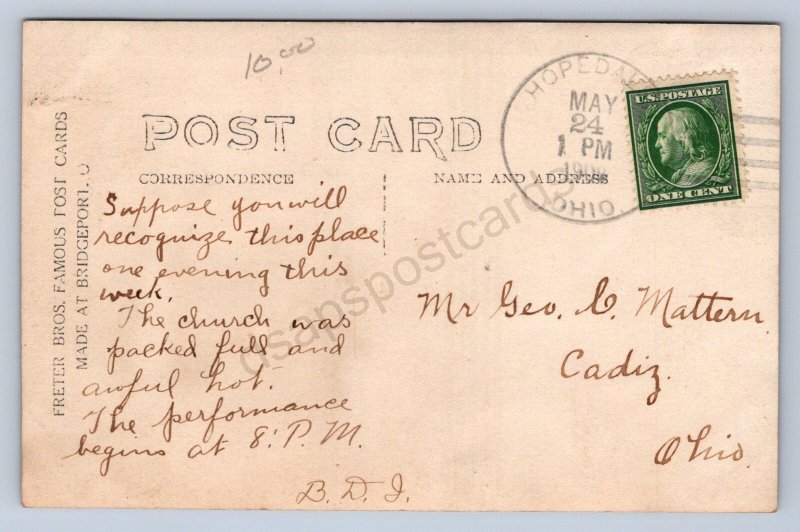 10.00
POST CARD
CORRESPONDENCE
NAME AND ADDRESS
FRETER BROS. FAMOUS POST CARDS
MADE AT BRIDGEPORT, O
HOPEDA
MAY
24
1 PM
OHIO
U.S. POSTAGE
ONE CENT
Suppose you will
recognize this place
one evening this
week.
The church was
packed full and
awful hot.
The performance
begins at 8. P.M.
B. D. J.
Mr Geo. C. Mattern
Cadiz.
Ohio.
dsapspostcards